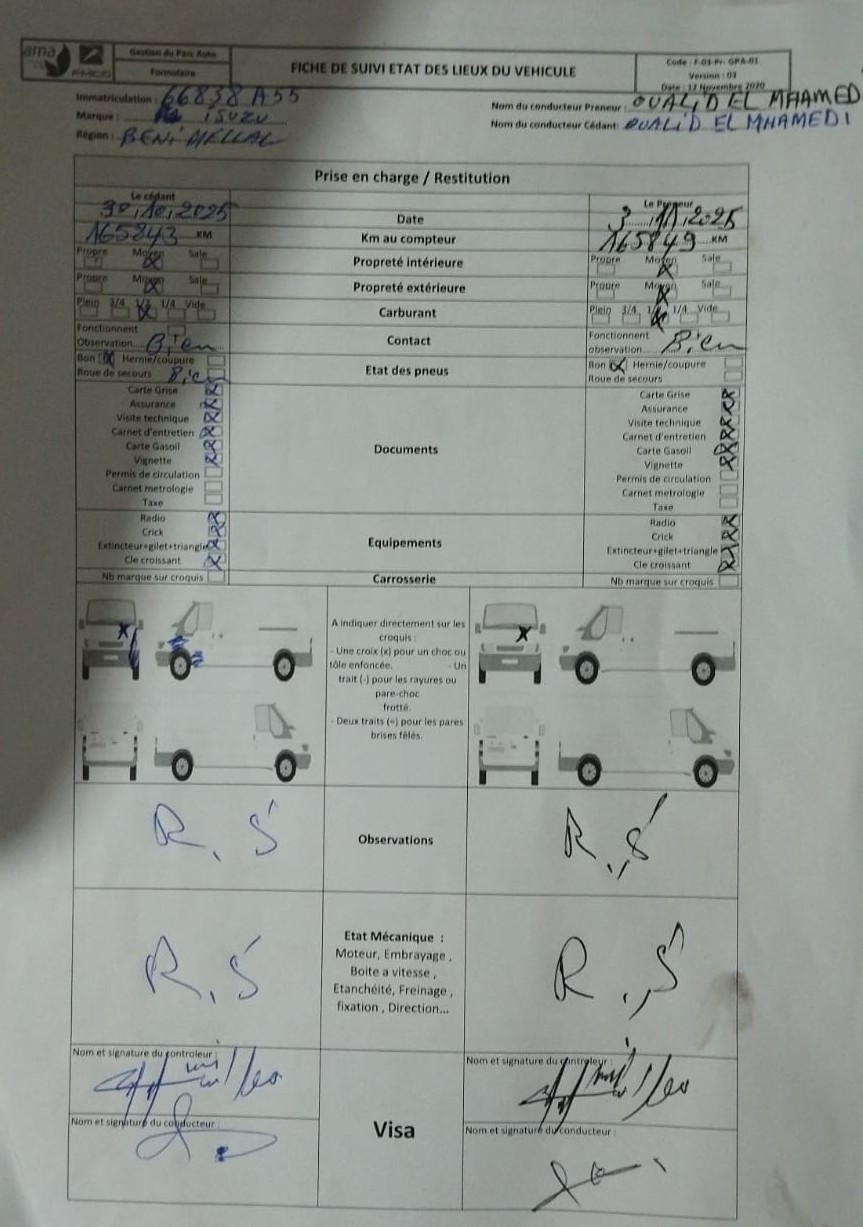 ama
FMCG
Gestion du Parc Auto
Formulaire
FICHE DE SUIVI ETAT DES LIEUX DU VEHICULE
Code : F-03-Pr- GPA-01
Version : 03
Date : 12 Novembre 2020
Immatriculation : 66838 A55
Marque : ISUZU
Région : BENI MELLAL
Nom du conducteur Preneur : OUALID EL MHAMED
Nom du conducteur Cédant: OUALID EL MHAMEDI
Prise en charge / Restitution
Le cédant
Le Preneur
30,10,2025 Date 3 ,11,2025
165843 KM Km au compteur 165849 KM
Propre Moyen Sale Propreté intérieure Propre Moyen Sale
Propre Moyen Sale Propreté extérieure Propre Moyen Sale
Plein 3/4 1/2 1/4 Vide Carburant Plein 3/4 1/4 Vide
Fonctionnent Contact Fonctionnent
Observation Bien observation Bien
Bon Hernie/coupure Etat des pneus Bon Hernie/coupure
Roue de secours Bien Roue de secours
Carte Grise Carte Grise
Assurance Assurance
Visite technique Visite technique
Carnet d'entretien Carnet d'entretien
Carte Gasoil Documents Carte Gasoil
Vignette Vignette
Permis de circulation Permis de circulation
Carnet metrologie Carnet metrologie
Taxe Taxe
Radio Radio
Crick Crick
Extincteur+gilet+triangle Equipements Extincteur+gilet+triangle
Cle croissant Cle croissant
Nb marque sur croquis Carrosserie Nb marque sur croquis
A indiquer directement sur les
croquis :
- Une croix (x) pour un choc ou
tôle enfoncée. - Un
trait (-) pour les rayures ou
pare-choc
frotté.
- Deux traits (=) pour les pares
brises fêlés.
R.S Observations R.S
R.S R.S
Etat Mécanique :
Moteur, Embrayage ,
Boite a vitesse ,
Etanchéité, Freinage ,
fixation , Direction...
Nom et signature du controleur : Nom et signature du controleur :
Visa
Nom et signature du conducteur : Nom et signature du conducteur :